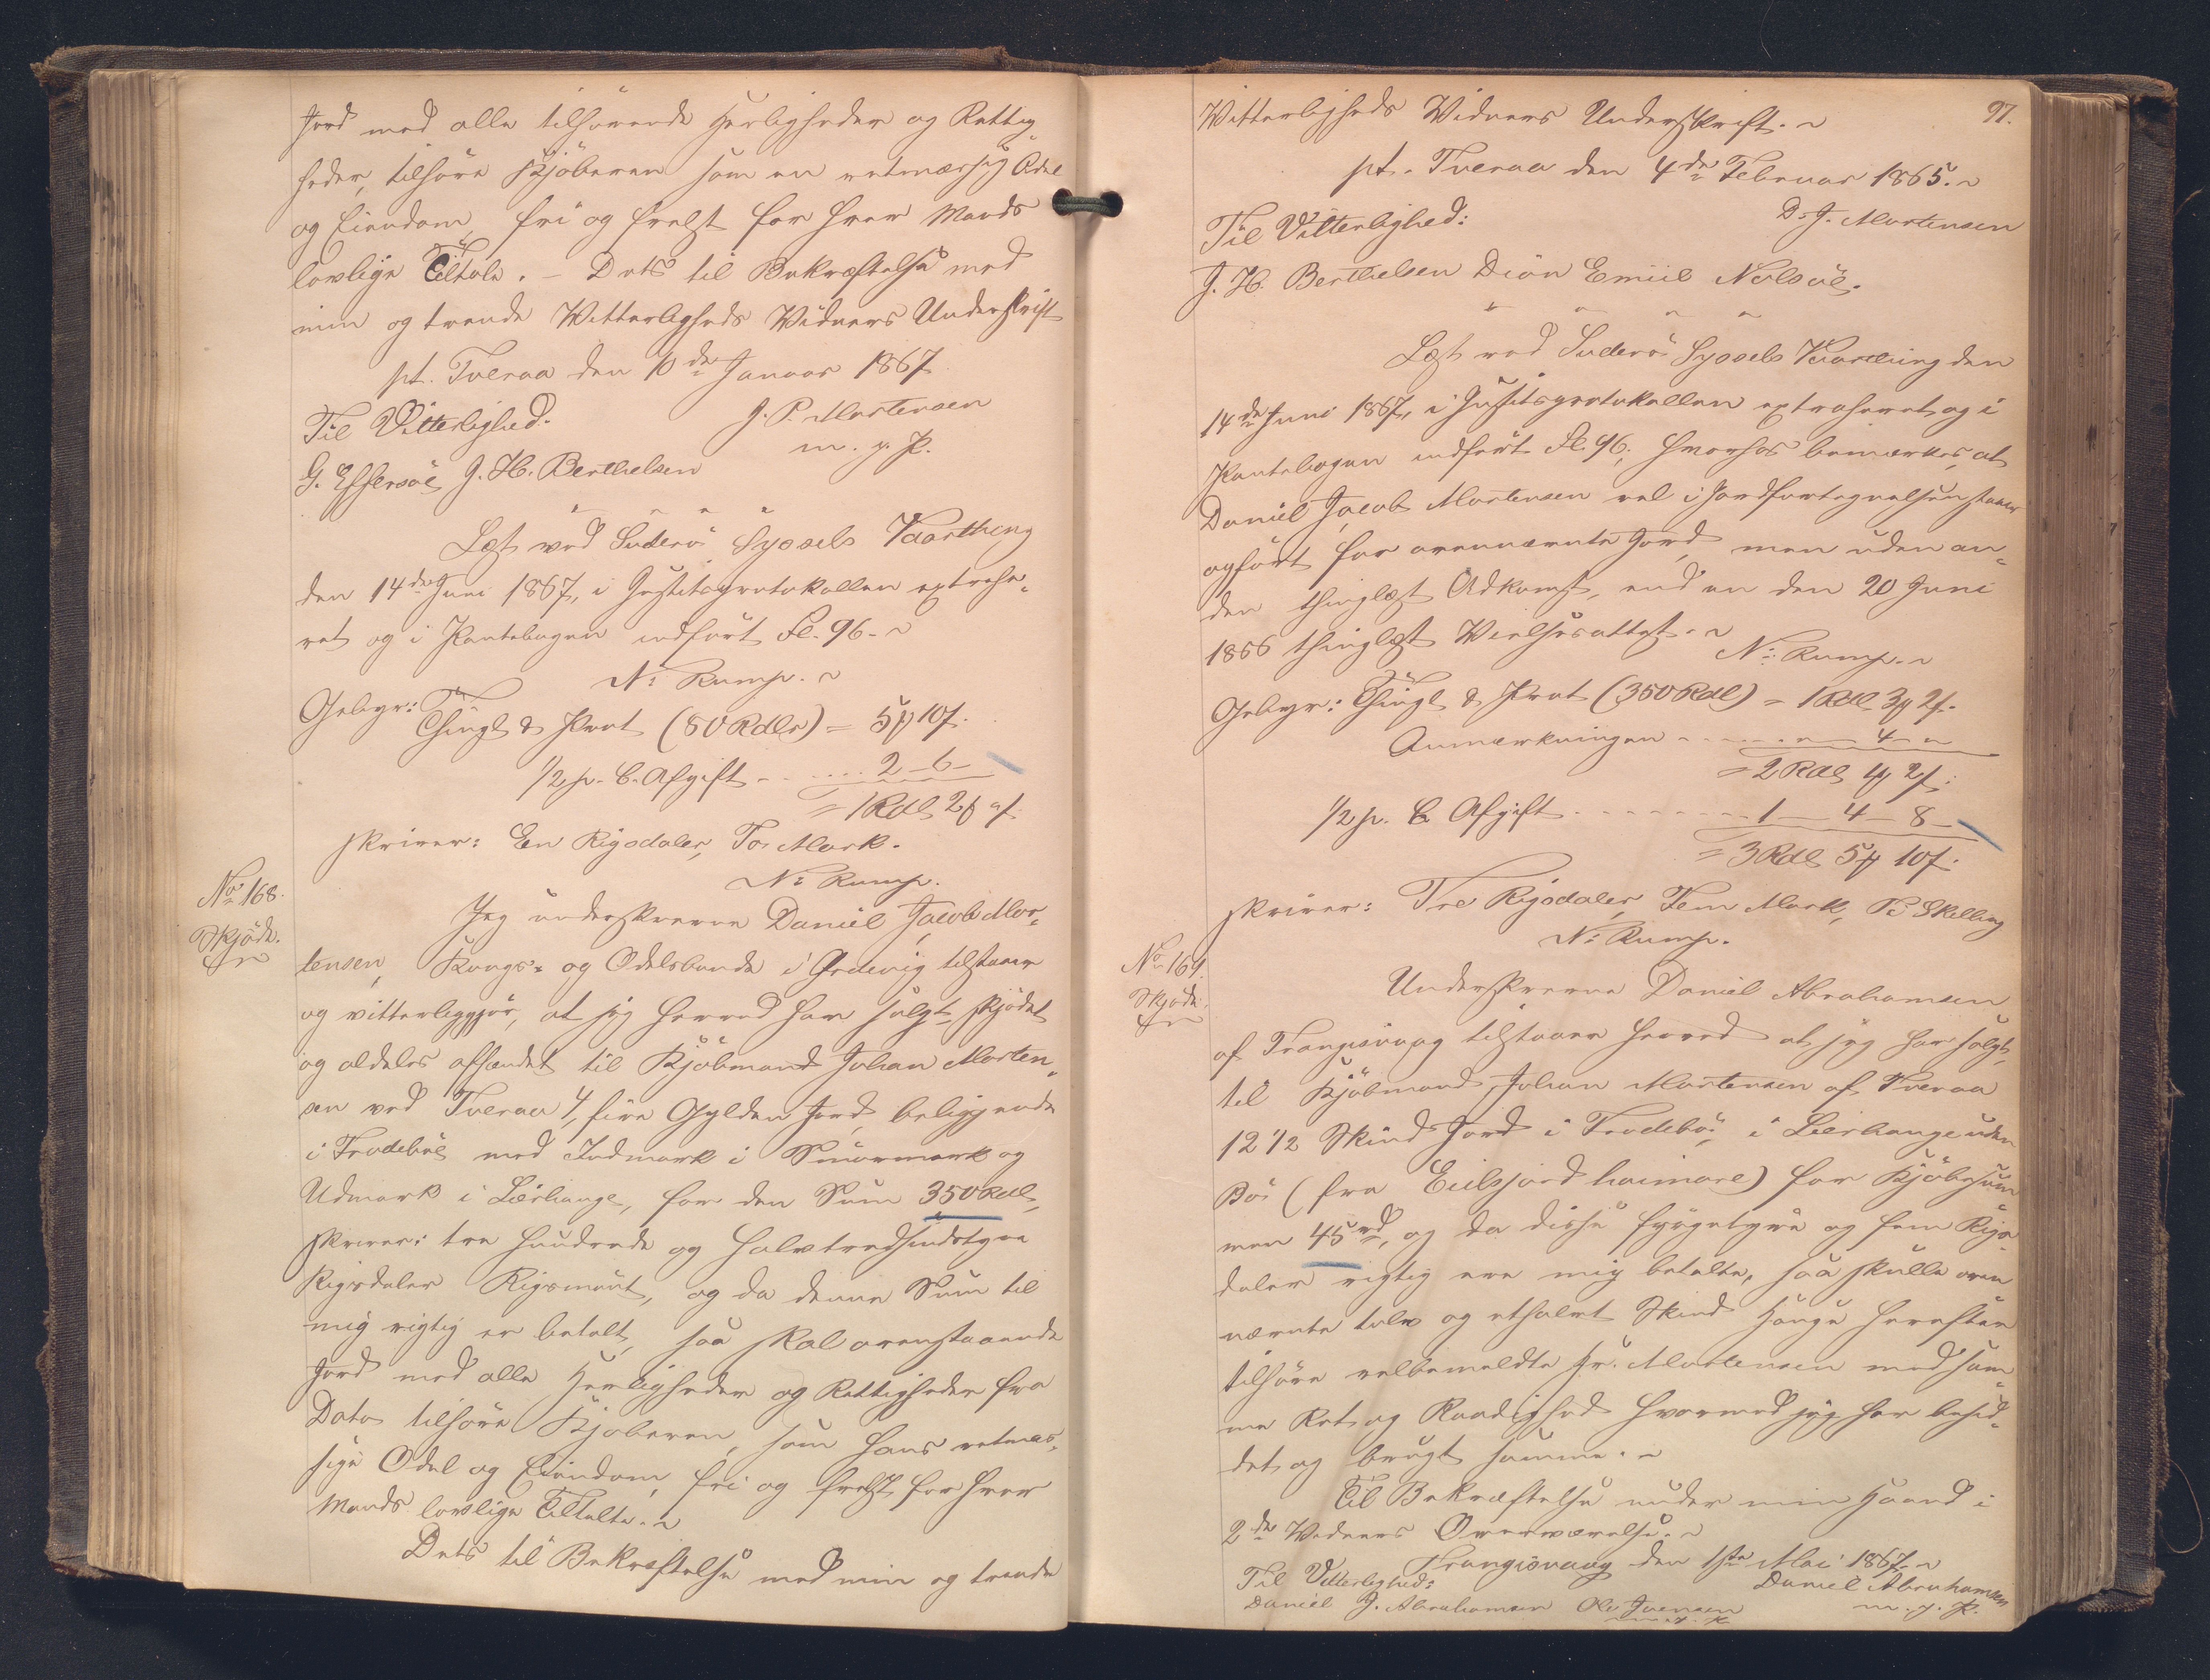 Jord med alle tilhørende Herligheder og Rettig-
heder, tilhøre Kjöberen som en retmæssig Odel
og Eiendom, fri og frelst for hver Mands
lovlige Tiltale. – Dets til Bekræftelse med
min og tvende Vitterligheds Vidners Underskrift
pt. Tveraa den 10de Januar 1867
Til Vitterlighed. J. P. Mortensen
m. p. P.
G. Effersöe J. H. Berthelsen
Læst ved Suderö Syssels Vaarthing
den 14de Juni 1867, i Justitsprotokollen extrahe-
ret og i Pantebogen indført Fol. 96.
N: Rump.
Gebyr: Thingl & Prot (50 Rdlr) = 5 ₰ 10 f.
1/2 p. C. Afgift - .... 2 - 6 -
= 1 Rdl 2 ₰ " f.
skriver: Een Rigsdaler, To Mark.
N: Rump.
No 168.
Skjöde.
Jeg underskrevne Daniel Jacob Mor-
tensen, Kongs- og Odelsbonde i Ördevig tilstaaer
og vitterliggjör, at jeg herved har solgt, skjödet
og aldeles afhændet til Kjöbmand Johan Morten-
sen ved Tveraa 4, fire Gylden Jord, beliggende
i Frodeböe med Indmark i Smörmork og
Udmark i Lierhange, for den Sum 350 Rdl,
skriver: tre hundrede og halvtredsindstyve
Rigsdaler Rigsmönt, og da denne Sum til
mig rigtig er betalt, saa skal ovenstaaende
Jord med alle Herligheder og Rettigheder fra
Dato tilhøre Kjøberen, som hans retmæs-
sige Odel og Eiendom, fri og frelst for hver
Mands lovlige Tiltale.
Dets til Bekræftelse med min og tvende
97.
Vitterligheds Vidners Underskrift.
pt. Tveraa den 4de Februar 1865.
Til Vitterlighed: D. J. Mortensen
J. H. Berthelsen Diön Emiil Nolsöe.
Læst ved Suderö Syssels Vaarthing den
14de Juni 1867, i Justitsprotokollen extraheret og i
Pantebogen indført Fol 96, hvorhos bemærkes, at
Daniel Jacob Mortensen vel i Jordfortegnelsen staaer
opført for ovennævnte Jord, men uden an-
den thinglæst Adkomst, end en den 20 Juni
1866 thinglæst Vielsesattest.
N: Rump.
Gebyr: Thingl & Prot (350 Rdl) = 1 Rdl 3 ₰ 2 f.
Anmærkningen - - - - - " - 4 - "
= 2 Rdl 1 ₰ 2 f.
1/2 p. C. Afgift - - - - - - 1 - 4 - 8 -
= 3 Rdl 5 ₰ 10 f.
skriver: Tre Rigsdaler, Fem Mark, Ti Skilling
N: Rump.
No 169.
Skjöde.
Underskrevne Daniel Abrahamsen
af Trangisvaag tilstaaer herved at jeg har solgt
til Kjöbmand Johan Mortensen af Tveraa
12 1/2 Skind Jord i Frodebö, i Lierhange uden
Bös (fra Eidsjord haimare) for Kjöbesum
men 45 rd, og da disse fyrgetyve og fem Rigs-
daler rigtig ere mig betalte, saa skulle oven
nævnte tolv og ethalvt Skind Hauge herefter
tilhøre velbemeldte Hr. Mortensen med sam-
me Ret og Raadighed hvormed jeg har besid-
det og brugt samme.
Til Bekræftelse under min Haand i
2de Vidners Overværelse.
Trangisvaag den 1ste Mai 1867.
Til Vitterlighed: Daniel Abrahamsen
Daniel J. Abrahamsen Ole Iversen m. p. P.